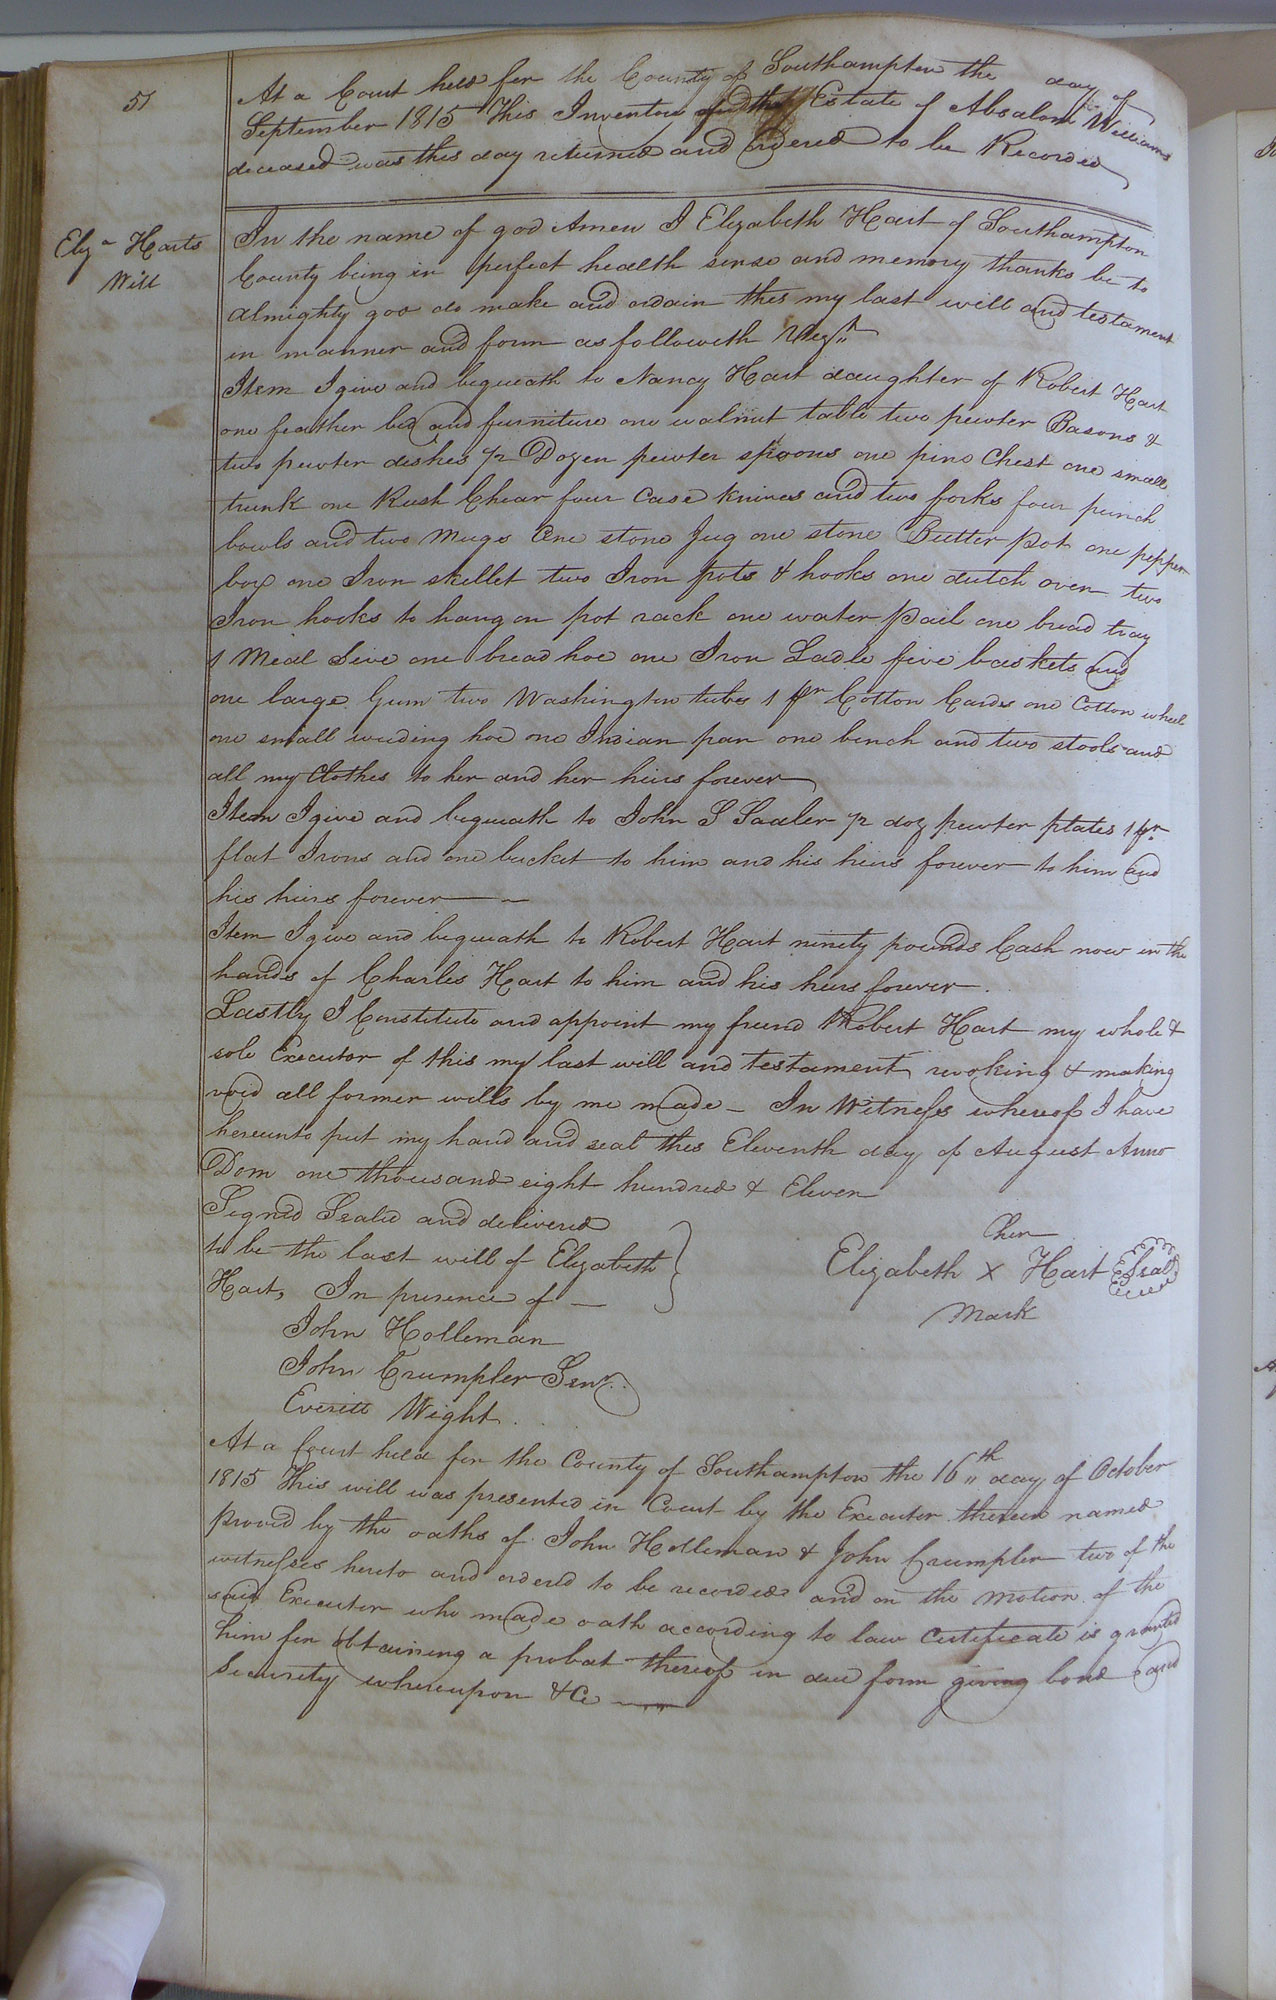 51
At a Court held for the County of Southampton the day of
September 1815 This Inventory of the Estate of Absalom Williams
deceased was this day returned and ordered to be Recorded
Elza Harts
Will
In the name of god Amen I Elizabeth Hart of Southampton
County being in perfect health sense and memory thanks be to
almighty god do make and ordain this my last will and testament
in manner and form as followeth Viz
Item I give and bequeath to Nancy Hart daughter of Robert Hart
one feather bed and furniture one walnut table two pewter Basons &
two pewter dishes 1/2 Dozen pewter spoons one pine Chest one small
trunk one Rush Chear four Case knives and two forks four punch
bowls and two Mugs One stone Jug one stone Butter pot one pepper
box one Iron skellet two Iron pots & hooks one dutch oven two
Iron hooks to hang on pot rack one water pail one bread tray
1 Meal Sive one bread hoe one Iron Ladle five baskets and
one large Gum two Washington tubs 1 pr Cotton Cards one Cotton wheel
one small weeding hoe one Indian pan one bench and two stools and
all my Clothes to her and her heirs forever
Item I give and bequeath to John S Sadler 1/2 doz pewter plates 1 pr
flat Irons and one bucket to him and his heirs forever to him and
his heirs forever
Item I give and bequeath to Robert Hart ninety pounds Cash now in the
hands of Charles Hart to him and his heirs forever.
Lastly I Constitute and appoint my friend Robert Hart my whole &
sole Executor of this my last will and testament revoking & making
void all former wills by me made – In Witness whereof I have
hereunto put my hand and seal this Eleventh day of August Anno
Dom one thousand eight hundred & Eleven
Signed Sealed and delivered
to be the last will of Elizabeth
Hart, In presence of —
her
Elizabeth X Hart Seal
Mark
John Holleman
John Crumpler Senr.
Everitt Wight.
At a Court held for the County of Southampton the 16th day of October
1815 This will was presented in Court by the Executor therein named
proved by the oaths of John Holleman & John Crumpler two of the
witnesses hereto and ordered to be recorded and on the motion of the
said Executor who made oath according to law Certificate is granted
him for obtaining a probat thereof in due form giving bond and
Security whereupon &c